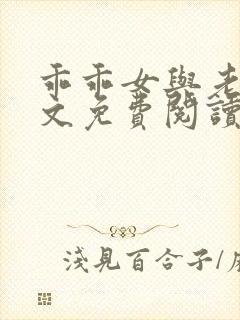 乖乖女與老
文免費閱讀
淺見百合子/